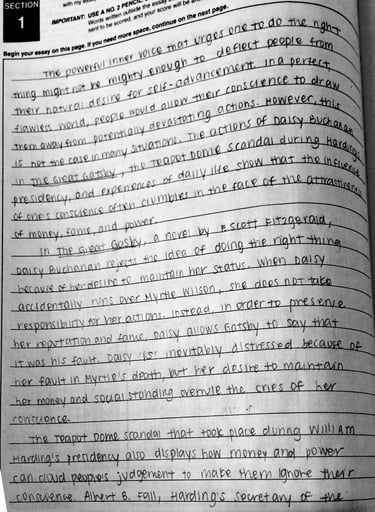 SECTION
1
with my
IMPORTANT: USE A NO. 2 PENCIL.
Words written outside the essay
sent to be scored, and your score will be
Begin your essay on this page. If you need more space, continue on the next page.
The powerful inner voice that urges one to do the right
thing might not be mighty enough to deflect people from
their natural desire for self-advancement. In a perfect,
flawless world, people would allow their conscience to draw
them away from potentially devastating actions. However, this
is not the case in many situations. The actions of Daisy Buchanan
in The Great Gatsby, the Teapot Dome scandal during Harding's
presidency, and experiences of daily life show that the influence
of one's conscience often crumbles in the face of the attractiveness
of money, fame, and power.
In The Great Gatsby, a novel by F. Scott Fitzgerald,
Daisy Buchanan rejects the idea of doing the right thing
because of her desire to maintain her status. When Daisy
accidentally runs over Myrtle Wilson, she does not take
responsibility for her actions. Instead, in order to preserve
her reputation and fame, Daisy allows Gatsby to say that
it was his fault. Daisy is inevitably distressed because of
her fault in Myrtle's death, but her desire to maintain
her money and social standing overrule the cries of her
conscience.
The Teapot Dome scandal that took place during William
Harding's presidency also displays how money and power
can cloud people's judgement to make them ignore their
conscience. Albert B. Fall, Harding's secretary of the